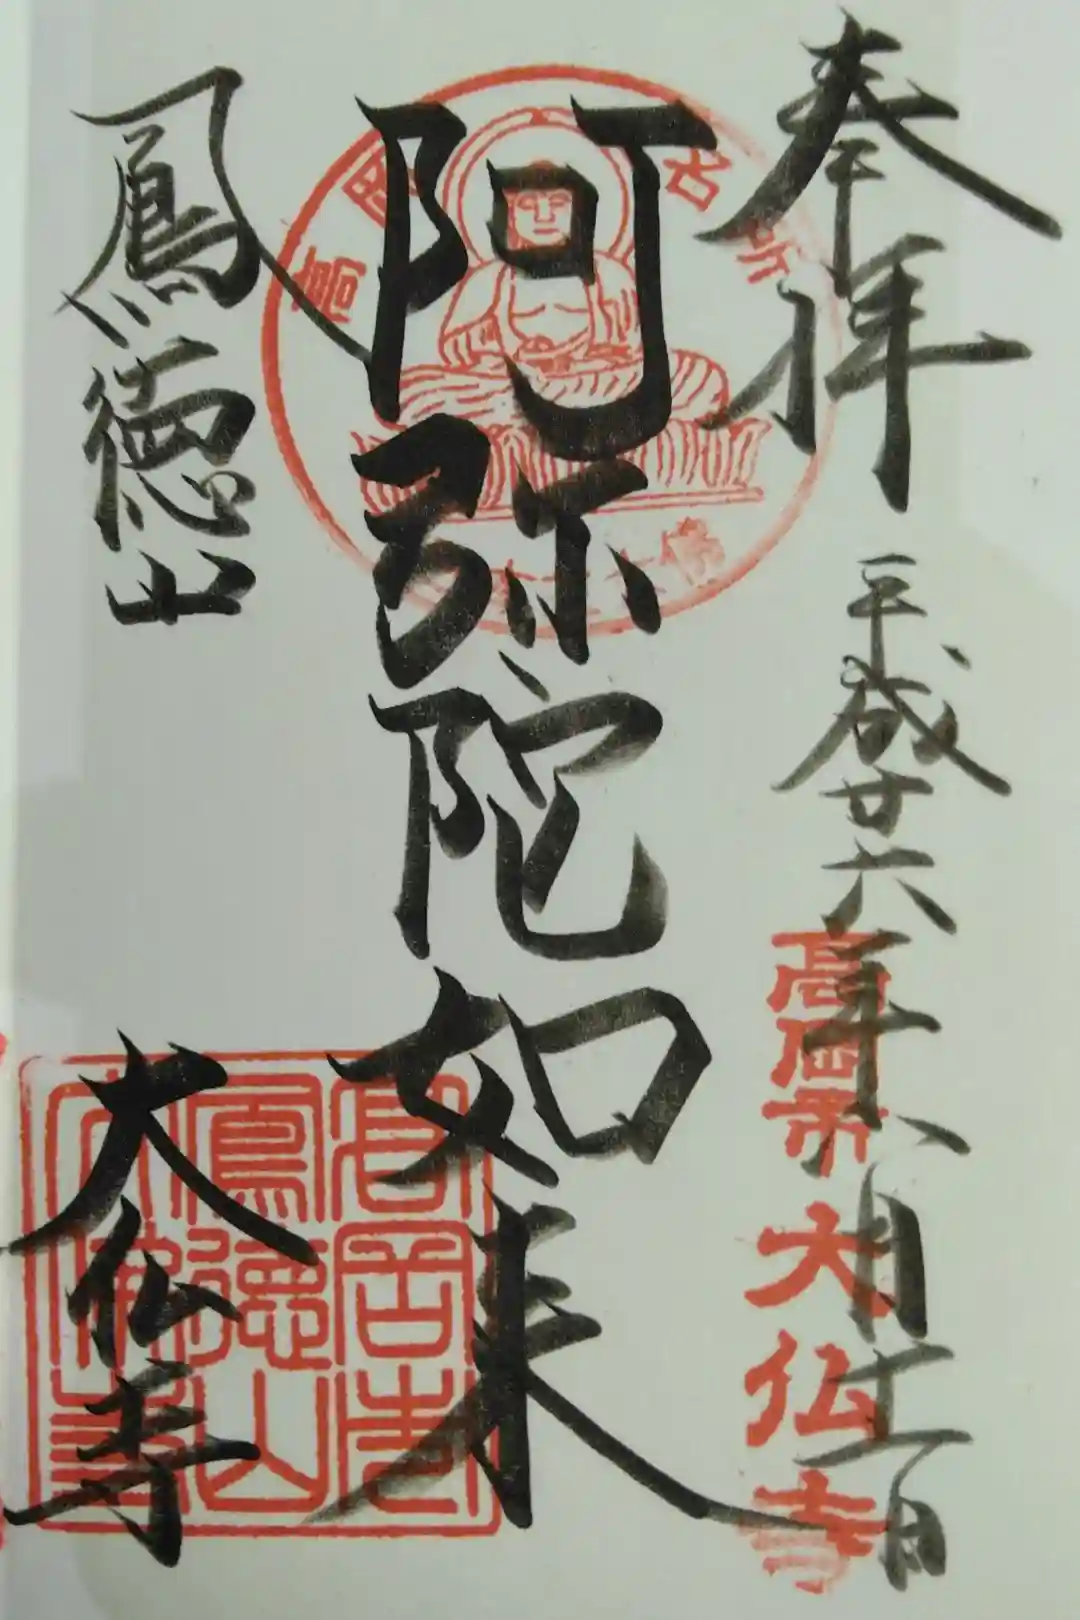 奉拝
平成廿六年八月十一日
高岡市
大仏寺
阿弥陀如来
鳳徳山
大仏寺
高岡市
鳳徳山
大佛寺